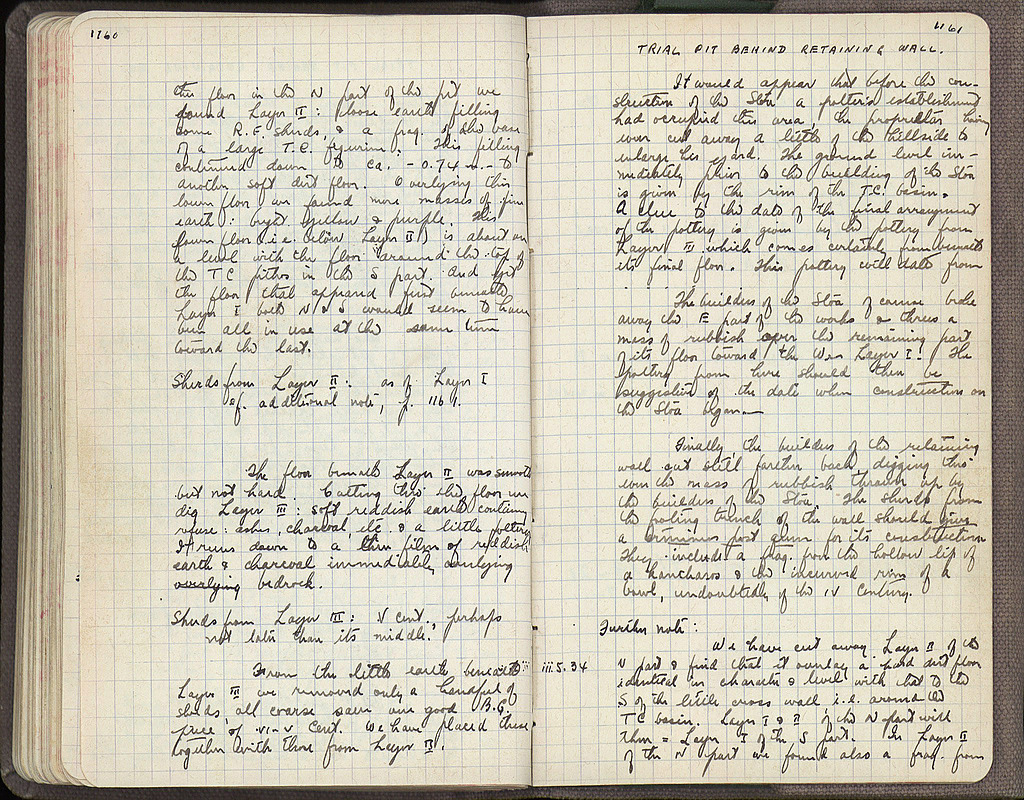 1160
this floor in the N part of the pit we
found Layer II: loose earth filling
some R.F. sherds, & a frag. of the base
of a large T.C. figurine. This filling
continued down to ca. - 0.74 m. - to
another soft dirt floor. Overlying this
lower floor we found more masses of fine
earth: bright yellow & purple. This
lower floor (i.e. below Layer II) is about on
a level with the floor around the top of
the TC pithos in the S part. And yet
the floor that appeared first beneath
Layer I both N & S would seem to have
been all in use at the same time
toward the last.
Sherds from Layer II: as of Layer I
cf. additional note, p. 1161.
The floor beneath Layer II was smooth
but not hard. Cutting thro' this floor we
dig Layer III: soft reddish earth containing
refuse: ashes, charcoal, etc. & a little pottery.
It runs down to a thin film of reddish
earth & charcoal immediately overlying
overlying bedrock.
Sherds from Layer III: V cent., perhaps
not later than its middle.
From the little earth beneath
Layer III we removed only a handful of
sherds, all coarse save one good B.G.
piece of VI-V Cent. We have placed these
together with those from Layer III.
1161
TRIAL PIT BEHIND RETAINING WALL.
It would appear that before the con-
struction of the Stoa a potter's establishment
had occupied this area, the proprietor having
even cut away a little of the hillside to
enlarge his yard. The ground level im-
mediately prior to the building of the Stoa
is given by the rim of the T.C. basin.
A clue to the date of the final arrangement
of the pottery is given by the pottery from
Layer III which comes certainly from beneath
its final floor. This pottery will date from
. . . . . .
The builders of the Stoa of course broke
away the E part of the works & threw a
mass of rubbish over the remaining part
of its floor toward the W, Layer I. The
pottery from here should then be
suggestive of the date when construction on
the Stoa began.
Finally, the builders of the retaining
wall cut still farther back, digging thro'
even the mass of rubbish thrown up by
the builders of the Stoa. The sherds from
the footing trench of the wall should give
a terminus post quem for its construction
They include a frag. from the hollow lip of
a kantharos & the incurved rim of a
bowl, undoubtedly of the IV Century.
Further note:
iii.5.34 We have cut away Layer II of the
N part & find that it overlay a hard dirt floor
identical in character & level with that to the
S of the little cross wall i.e. around the
TC basin. Layer I & II of the N part will
then = Layer I of the S part. In Layer II
of the N part we found also a frag. from